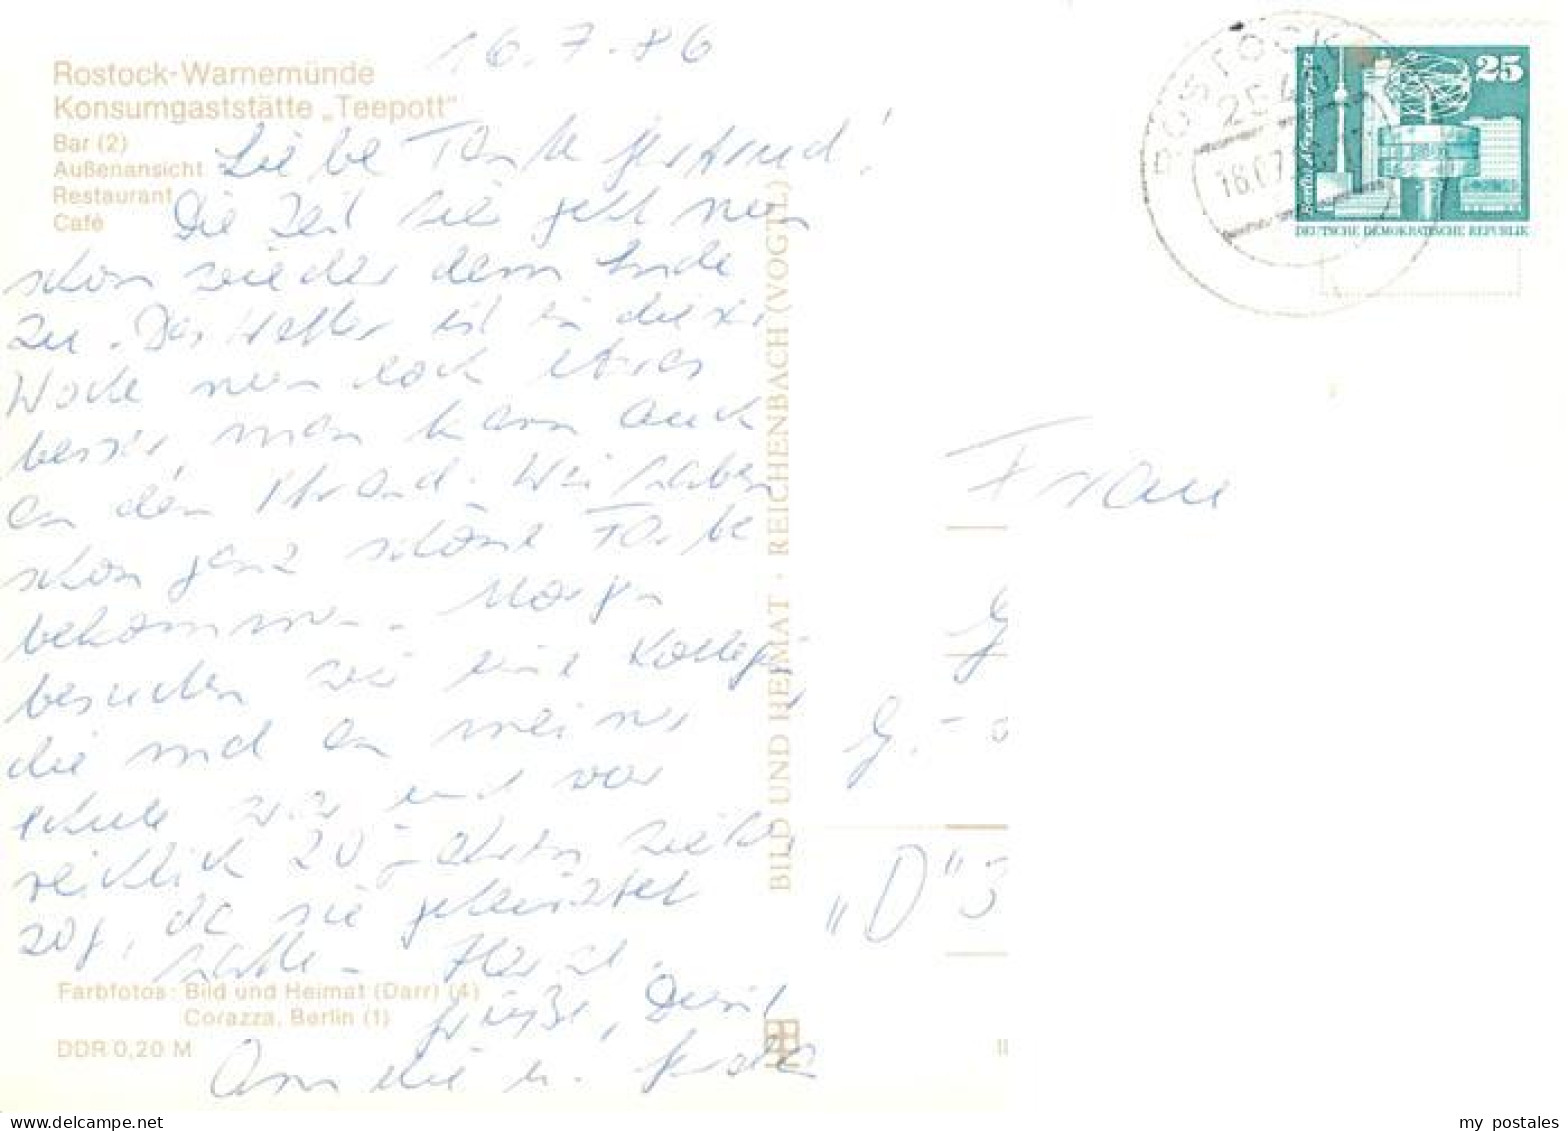 16.7.86
Rostock-Warnemünde
Konsumgaststätte „Teepott"
Bar (2)
Außenansicht
Restaurant
Café
Liebe Tante Gertrud!
Die Zeit hier geht nun
schon wieder dem Ende
zu. Das Wetter ist in dieser
Woche nun doch etwas
besser, man kann auch
an den Strand. Wir haben
schon ganz schöne Farbe
bekommen. Morgen
besuchen wir eine Kollegin,
die mal an meiner
Schule war und vor
reichlich 20 Jahren
zog, da sie geheiratet
hatte. Herzl.
Grüße, Deine
Annelie u.
Farbfotos: Bild und Heimat (Darr) (4)
Corazza, Berlin (1)
DDR 0,20 M
BILD UND HEIMAT · REICHENBACH (VOGTL)
ROSTOCK
25
Berlin, Alexanderplatz
25
DEUTSCHE DEMOKRATISCHE REPUBLIK
Frau
G.
„D"
my postales